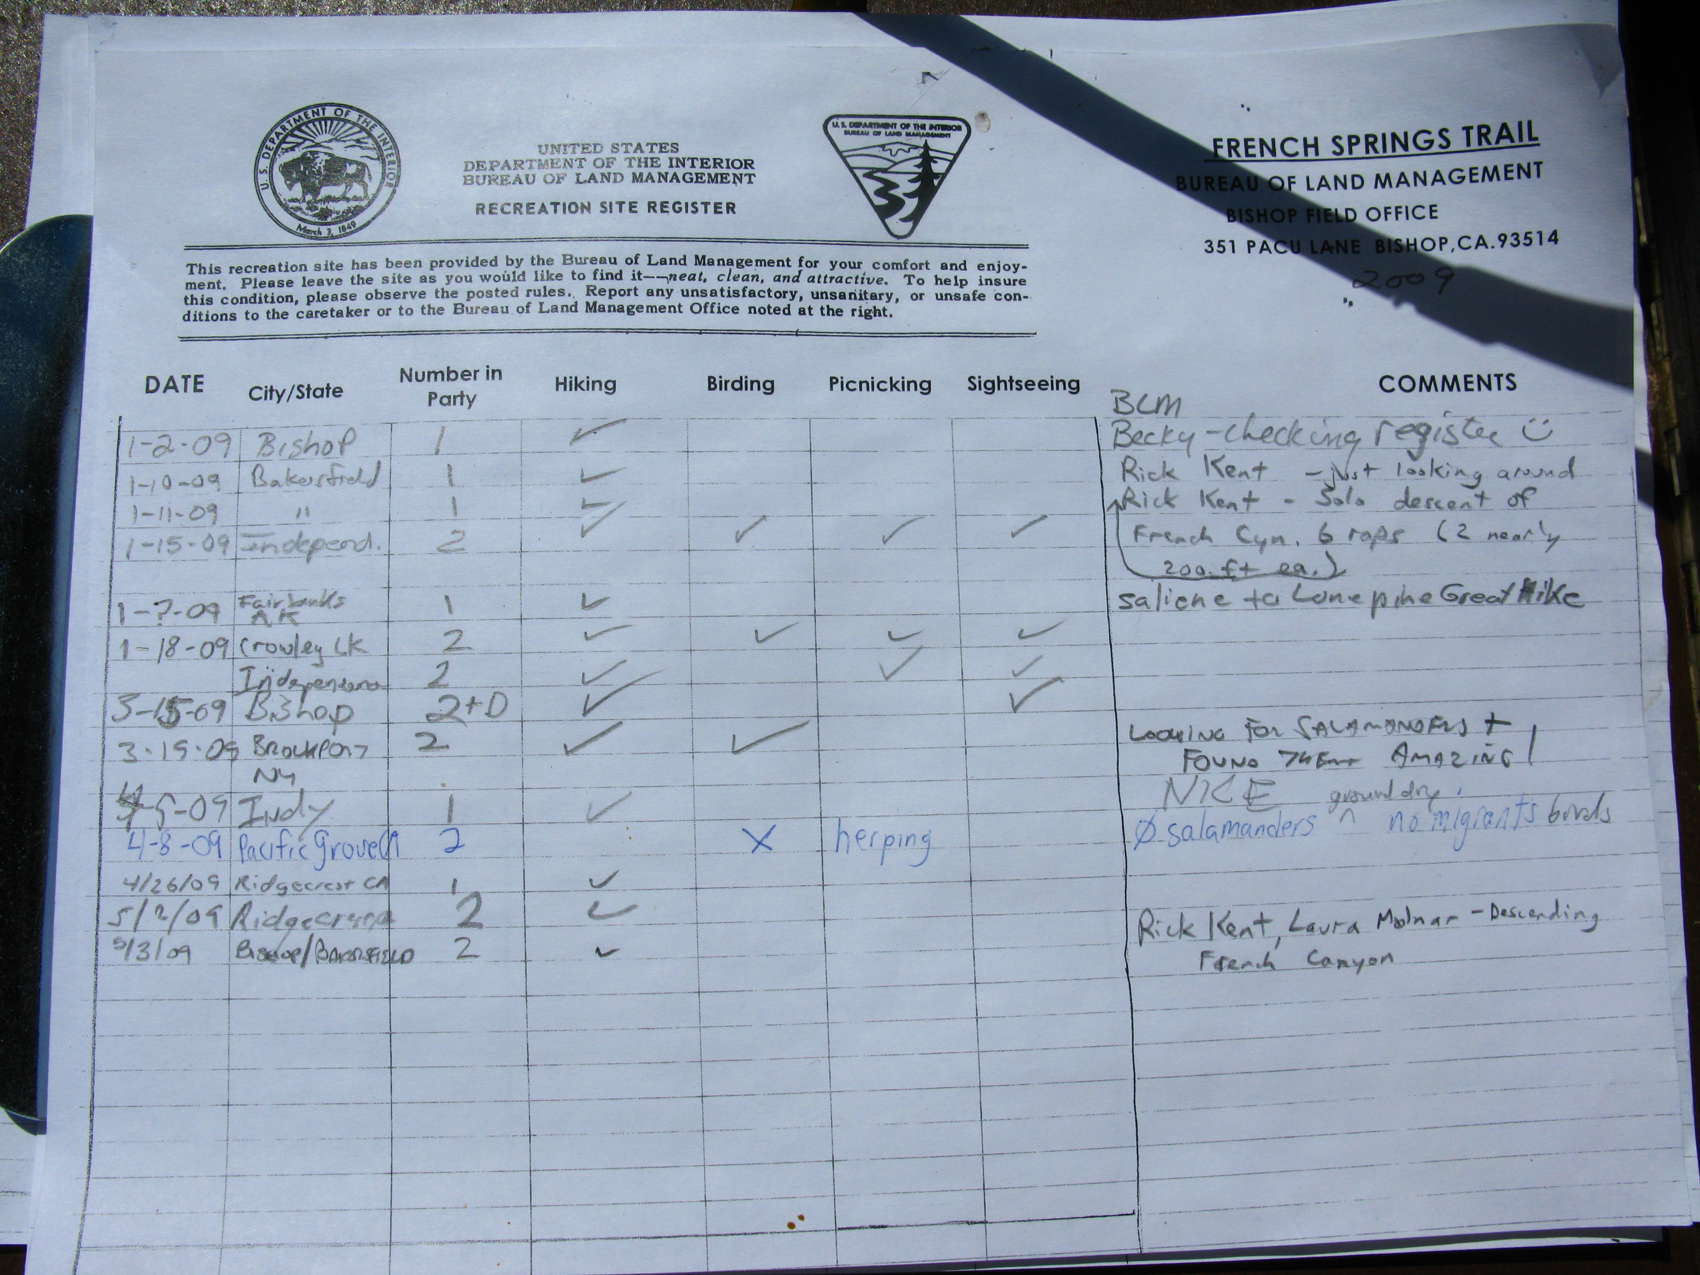 U.S. DEPARTMENT OF THE INTERIOR
March 3, 1849
UNITED STATES
DEPARTMENT OF THE INTERIOR
BUREAU OF LAND MANAGEMENT
RECREATION SITE REGISTER
U.S. DEPARTMENT OF THE INTERIOR
BUREAU OF LAND MANAGEMENT
FRENCH SPRINGS TRAIL
BUREAU OF LAND MANAGEMENT
BISHOP FIELD OFFICE
351 PACU LANE BISHOP, CA. 93514
2009
This recreation site has been provided by the Bureau of Land Management for your comfort and enjoy-
ment. Please leave the site as you would like to find it—neat, clean, and attractive. To help insure
this condition, please observe the posted rules. Report any unsatisfactory, unsanitary, or unsafe con-
ditions to the caretaker or to the Bureau of Land Management Office noted at the right.
DATE City/State Number in Party Hiking Birding Picnicking Sightseeing COMMENTS
BLM
1-2-09 Bishop 1 ✓ Becky - checking register ☺
1-10-09 Bakersfield 1 ✓ Rick Kent - just looking around
1-11-09 " 1 ✓ Rick Kent - Solo descent of
1-15-09 Independ. 2 ✓ ✓ ✓ ✓ French Cyn. 6 raps (2 nearly
200 ft ea.)
1-?-09 Fairbanks AK 1 ✓ saliene to Lonepine Great Hike
1-18-09 Crowley LK 2 ✓ ✓ ✓ ✓
2 ✓ ✓ ✓
Bishop 2+D ✓ ✓
3-15-09 Brockport 2 ✓ ✓ LOOKING FOR SALAMANDERS +
NY FOUND THEM AMAZING!
4-5-09 Indy 1 ✓ NICE
4-8-09 Pacific Grove CA 2 X herping Ø salamanders ^ ground dry, no migrants birds
4/26/09 Ridgecrest CA 1 ✓
5/2/09 Ridgecrest 2 ✓ Rick Kent, Laura Molnar - Descending
5/3/09 Bishop/BAKERSFIELD 2 ✓ French Canyon